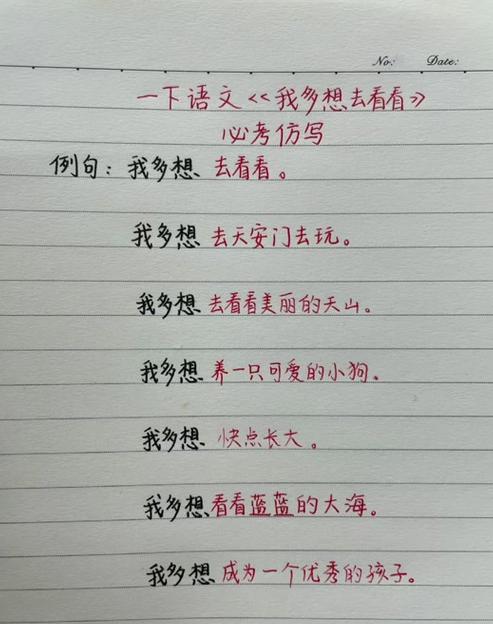 No: Date:
一下语文《我多想去看看》
必考仿写
例句：我多想 去看看。
我多想 去天安门去玩。
我多想 去看看美丽的天山。
我多想 养一只可爱的小狗。
我多想 快点长大。
我多想 看看蓝蓝的大海。
我多想 成为一个优秀的孩子。